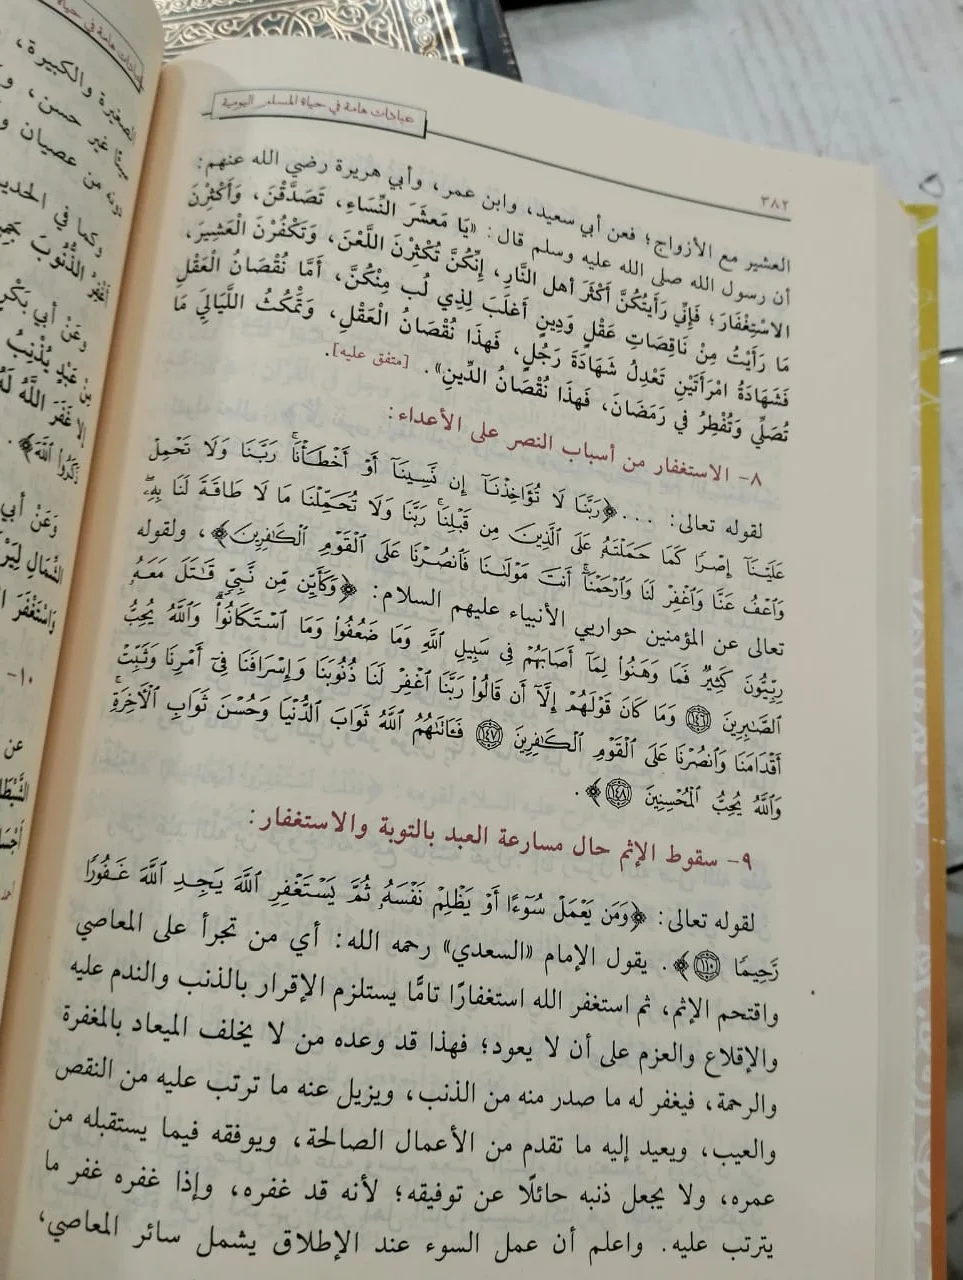 عبادات هامة في حياة المسلم اليومية
٣٨٢
العشير مع الأزواج؛ فعن أبي سعيد، وابن عمر، وأبي هريرة رضي الله عنهم:
أن رسول الله صلى الله عليه وسلم قال: «يَا مَعْشَرَ النِّسَاءِ، تَصَدَّقْنَ، وَأَكْثِرْنَ
الاسْتِغْفَارَ؛ فَإِنِّي رَأَيْتُكُنَّ أَكْثَرَ أهل النَّارِ، إِنَّكُنَّ تُكْثِرْنَ اللَّعْنَ، وَتَكْفُرْنَ الْعَشِيرَ،
مَا رَأَيْتُ مِنْ نَاقِصَاتِ عَقْلٍ وَدِينٍ أَغلَبَ لِذِي لُب مِنْكُنَّ، أَمَّا نُقْصَانُ الْعَقْلِ
فَشَهَادَةُ امْرَأَتَيْنِ تَعْدِلُ شَهَادَةَ رَجُلٍ، فَهَذَا نُقْصَانُ الْعَقْلِ، وَتَمْكُثُ اللَّيَالِيَ مَا
تُصَلِّي وَتُفْطِرُ فِي رَمَضَانَ، فَهَذَا نُقْصَانُ الدِّينِ». [متفق عليه].
٨- الاستغفار من أسباب النصر على الأعداء:
لقوله تعالى: ... ﴿رَبَّنَا لَا تُؤَاخِذْنَآ إِن نَّسِينَآ أَوْ أَخْطَأْنَا رَبَّنَا وَلَا تَحْمِلْ
عَلَيْنَآ إِصْرًا كَمَا حَمَلْتَهُۥ عَلَى ٱلَّذِينَ مِن قَبْلِنَا رَبَّنَا وَلَا تُحَمِّلْنَا مَا لَا طَاقَةَ لَنَا بِهِۦ
وَٱعْفُ عَنَّا وَٱغْفِرْ لَنَا وَٱرْحَمْنَآ أَنتَ مَوْلَىٰنَا فَٱنصُرْنَا عَلَى ٱلْقَوْمِ ٱلْكَٰفِرِينَ﴾، ولقوله
تعالى عن المؤمنين حواريي الأنبياء عليهم السلام: ﴿وَكَأَيِّن مِّن نَّبِيٍّ قَٰتَلَ مَعَهُۥ
رِبِّيُّونَ كَثِيرٌ فَمَا وَهَنُوا۟ لِمَآ أَصَابَهُمْ فِي سَبِيلِ ٱللَّهِ وَمَا ضَعُفُوا۟ وَمَا ٱسْتَكَانُوا۟ وَٱللَّهُ يُحِبُّ
ٱلصَّٰبِرِينَ ١٤٦ وَمَا كَانَ قَوْلَهُمْ إِلَّآ أَن قَالُوا۟ رَبَّنَا ٱغْفِرْ لَنَا ذُنُوبَنَا وَإِسْرَافَنَا فِيٓ أَمْرِنَا وَثَبِّتْ
أَقْدَامَنَا وَٱنصُرْنَا عَلَى ٱلْقَوْمِ ٱلْكَٰفِرِينَ ١٤٧ فَـَٔاتَىٰهُمُ ٱللَّهُ ثَوَابَ ٱلدُّنْيَا وَحُسْنَ ثَوَابِ ٱلْـَٔاخِرَةِ
وَٱللَّهُ يُحِبُّ ٱلْمُحْسِنِينَ ١٤٨﴾.
٩- سقوط الإثم حال مسارعة العبد بالتوبة والاستغفار:
لقوله تعالى: ﴿وَمَن يَعْمَلْ سُوٓءًا أَوْ يَظْلِمْ نَفْسَهُۥ ثُمَّ يَسْتَغْفِرِ ٱللَّهَ يَجِدِ ٱللَّهَ غَفُورًا
رَّحِيمًا ١١٠﴾. يقول الإمام «السعدي» رحمه الله: أي من تجرأ على المعاصي
واقتحم الإثم، ثم استغفر الله استغفارًا تامًّا يستلزم الإقرار بالذنب والندم عليه
والإقلاع والعزم على أن لا يعود؛ فهذا قد وعده من لا يخلف الميعاد بالمغفرة
والرحمة، فيغفر له ما صدر منه من الذنب، ويزيل عنه ما ترتب عليه من النقص
والعيب، ويعيد إليه ما تقدم من الأعمال الصالحة، ويوفقه فيما يستقبله من
عمره، ولا يجعل ذنبه حائلًا عن توفيقه؛ لأنه قد غفره، وإذا غفره غفر ما
يترتب عليه. واعلم أن عمل السوء عند الإطلاق يشمل سائر المعاصي،